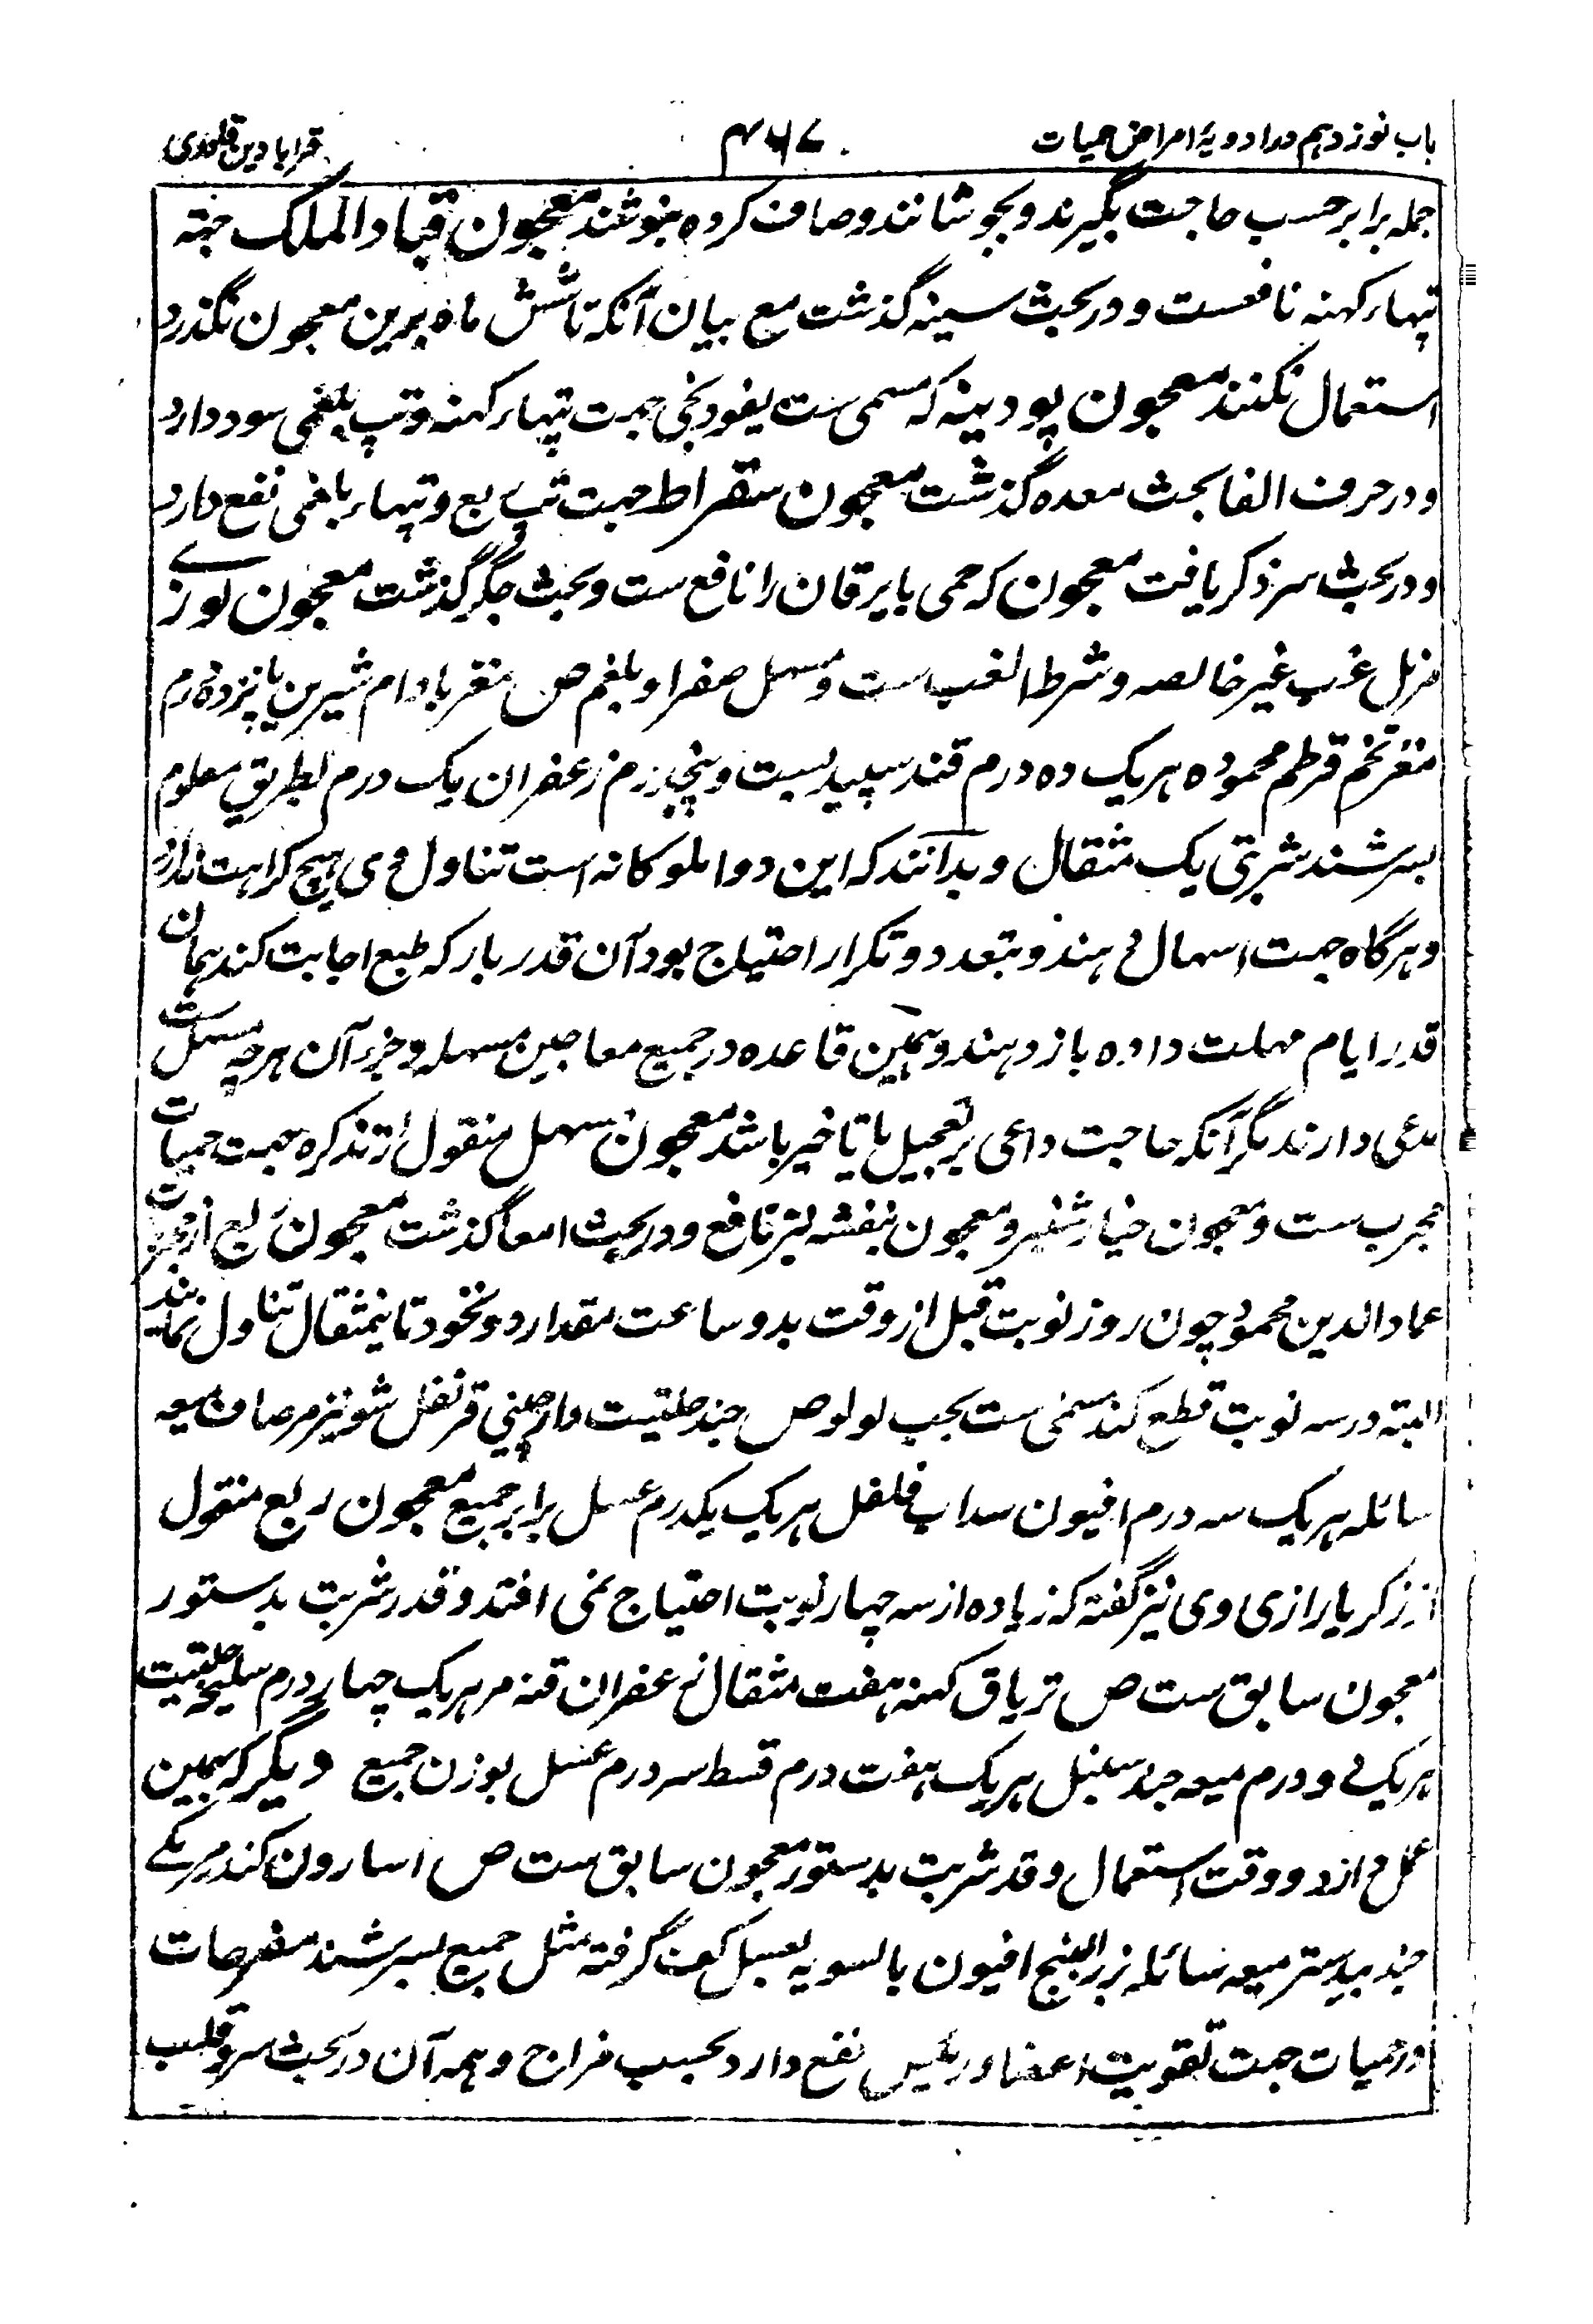 باب نوزدہم در ادویۂ امراض حمیات
۴۶۷
قرابادین قادری
جملہ برابر حسب حاجت بگیرند و بجوشانند و صاف کردہ بنوشند معجون قباد الملک جہتہ
تپہاء کہنہ نافعست و در بحث سینہ گذشت مع بیان آنکہ تا شش ماہ برین معجون نگذرد
استعمال نکنند معجون پودینہ کہ مسمی ست بفودنجی جہت تپہاء کہنہ و تپ بلغمی سود دارد
و در حرف الفا بحث معدہ گذشت معجون سقراط جہت تپ ربع و تپہاء بلغمی نفع دارد
و در بحث سر ذکر یافت معجون کہ حمی با یرقان را نافع ست و بحث جگر گذشت معجون لوزے
مزیل غب غیر خالصہ و شطر الغب ست و مسہل صفرا و بلغم ص مغز بادام شیرین پانزدہ درم
مغز تخم قرطم محمودہ ہر یک دہ درم قند سپید بست و پنج درم زعفران یک درم بطریق معلوم
بسرشند شربتی یک مثقال و بدانند کہ این دوا ملوکانہ است تناول وی ہیچ کراہت ندارد
و ہرگاہ جہت اسہال دہند و بتعدد و تکرار احتیاج بود آن قدر بار کہ طبع اجابت کند ہمان
قدر ایام مہلت دادہ باز دہند و ہمین قاعدہ در جمیع معاجین مسہلہ و جز آن ہر چہ مسہل ست
مرعی دارند مگر آنکہ حاجت داعی بر تعجیل یا تاخیر باشد معجون مسہل منقول از تذکرہ جہت حمیات
مجرب ست و معجون خیارشنبر و معجون بنفشہ نیز نافع و در بحث امعا گذشت معجون ربع از مجربات
عماد الدین محمود چون روز نوبت قبل از وقت بدو ساعت مقدار دو نخود تا نیمثقال تناول نمایند
البتہ در سہ نوبت قطع کند مسمی ست بحب لولو ص جند حلتیت دارچینی قرنفل شونیز مر صاف میعہ
سائلہ ہر یک سہ درم افیون سداب فلفل ہر یک یکدرم عسل برابر جمیع معجون ربع منقول
از زکریا رازی وی نیز گفتہ کہ زیادہ از سہ چہار نوبت احتیاج نمی افتد و قدر شربت بدستور
معجون سابق ست ص تریاق کہنہ ہفت مثقال زعفران قنہ مر ہر یک چہار درم سلیخہ حلتیت
ہر یک دو درم میعہ جند سنبل ہر یک ہفت درم قسط سہ درم عسل بوزن جمیع دیگر کہ ہمین
عمل دارد و وقت استعمال و قدر شربت بدستور معجون سابق ست ص اسارون کندر مر مکے
جند بیدستر میعہ سائلہ بزر البنج افیون بالسویہ بعسل کف گرفتہ مثل جمیع بسرشند مفرحات
در حمیات جہت تقویت اعضاء رئیس نفع دارد بحسب مزاج و ہمہ آن در بحث سر و قلب